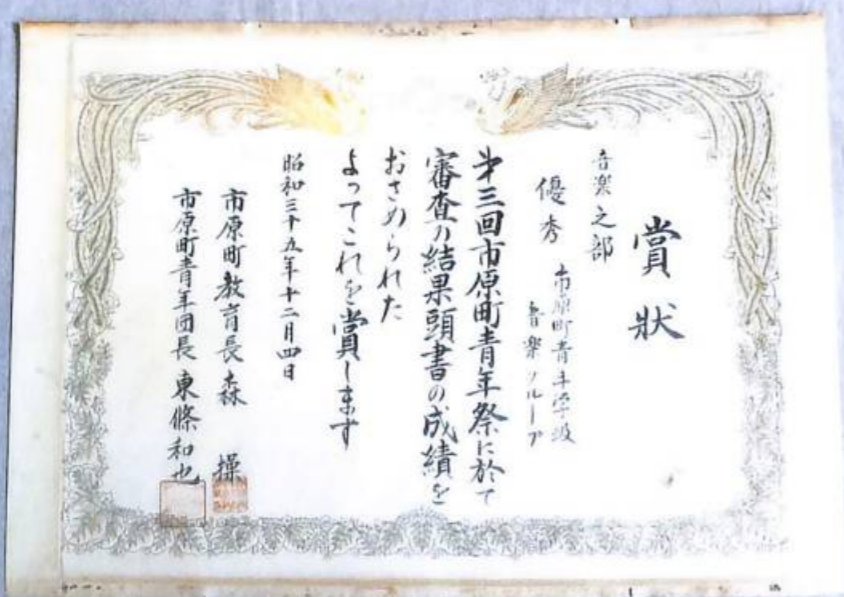 賞狀
音楽之部
優秀 市原町青年学級
音楽グループ
才三回市原町青年祭に於て
審査の結果頭書の成績を
おさめられた
よってこれを賞します
昭和三十五年十二月四日
市原町教育長 森 操
市原町青年団長 東條和也